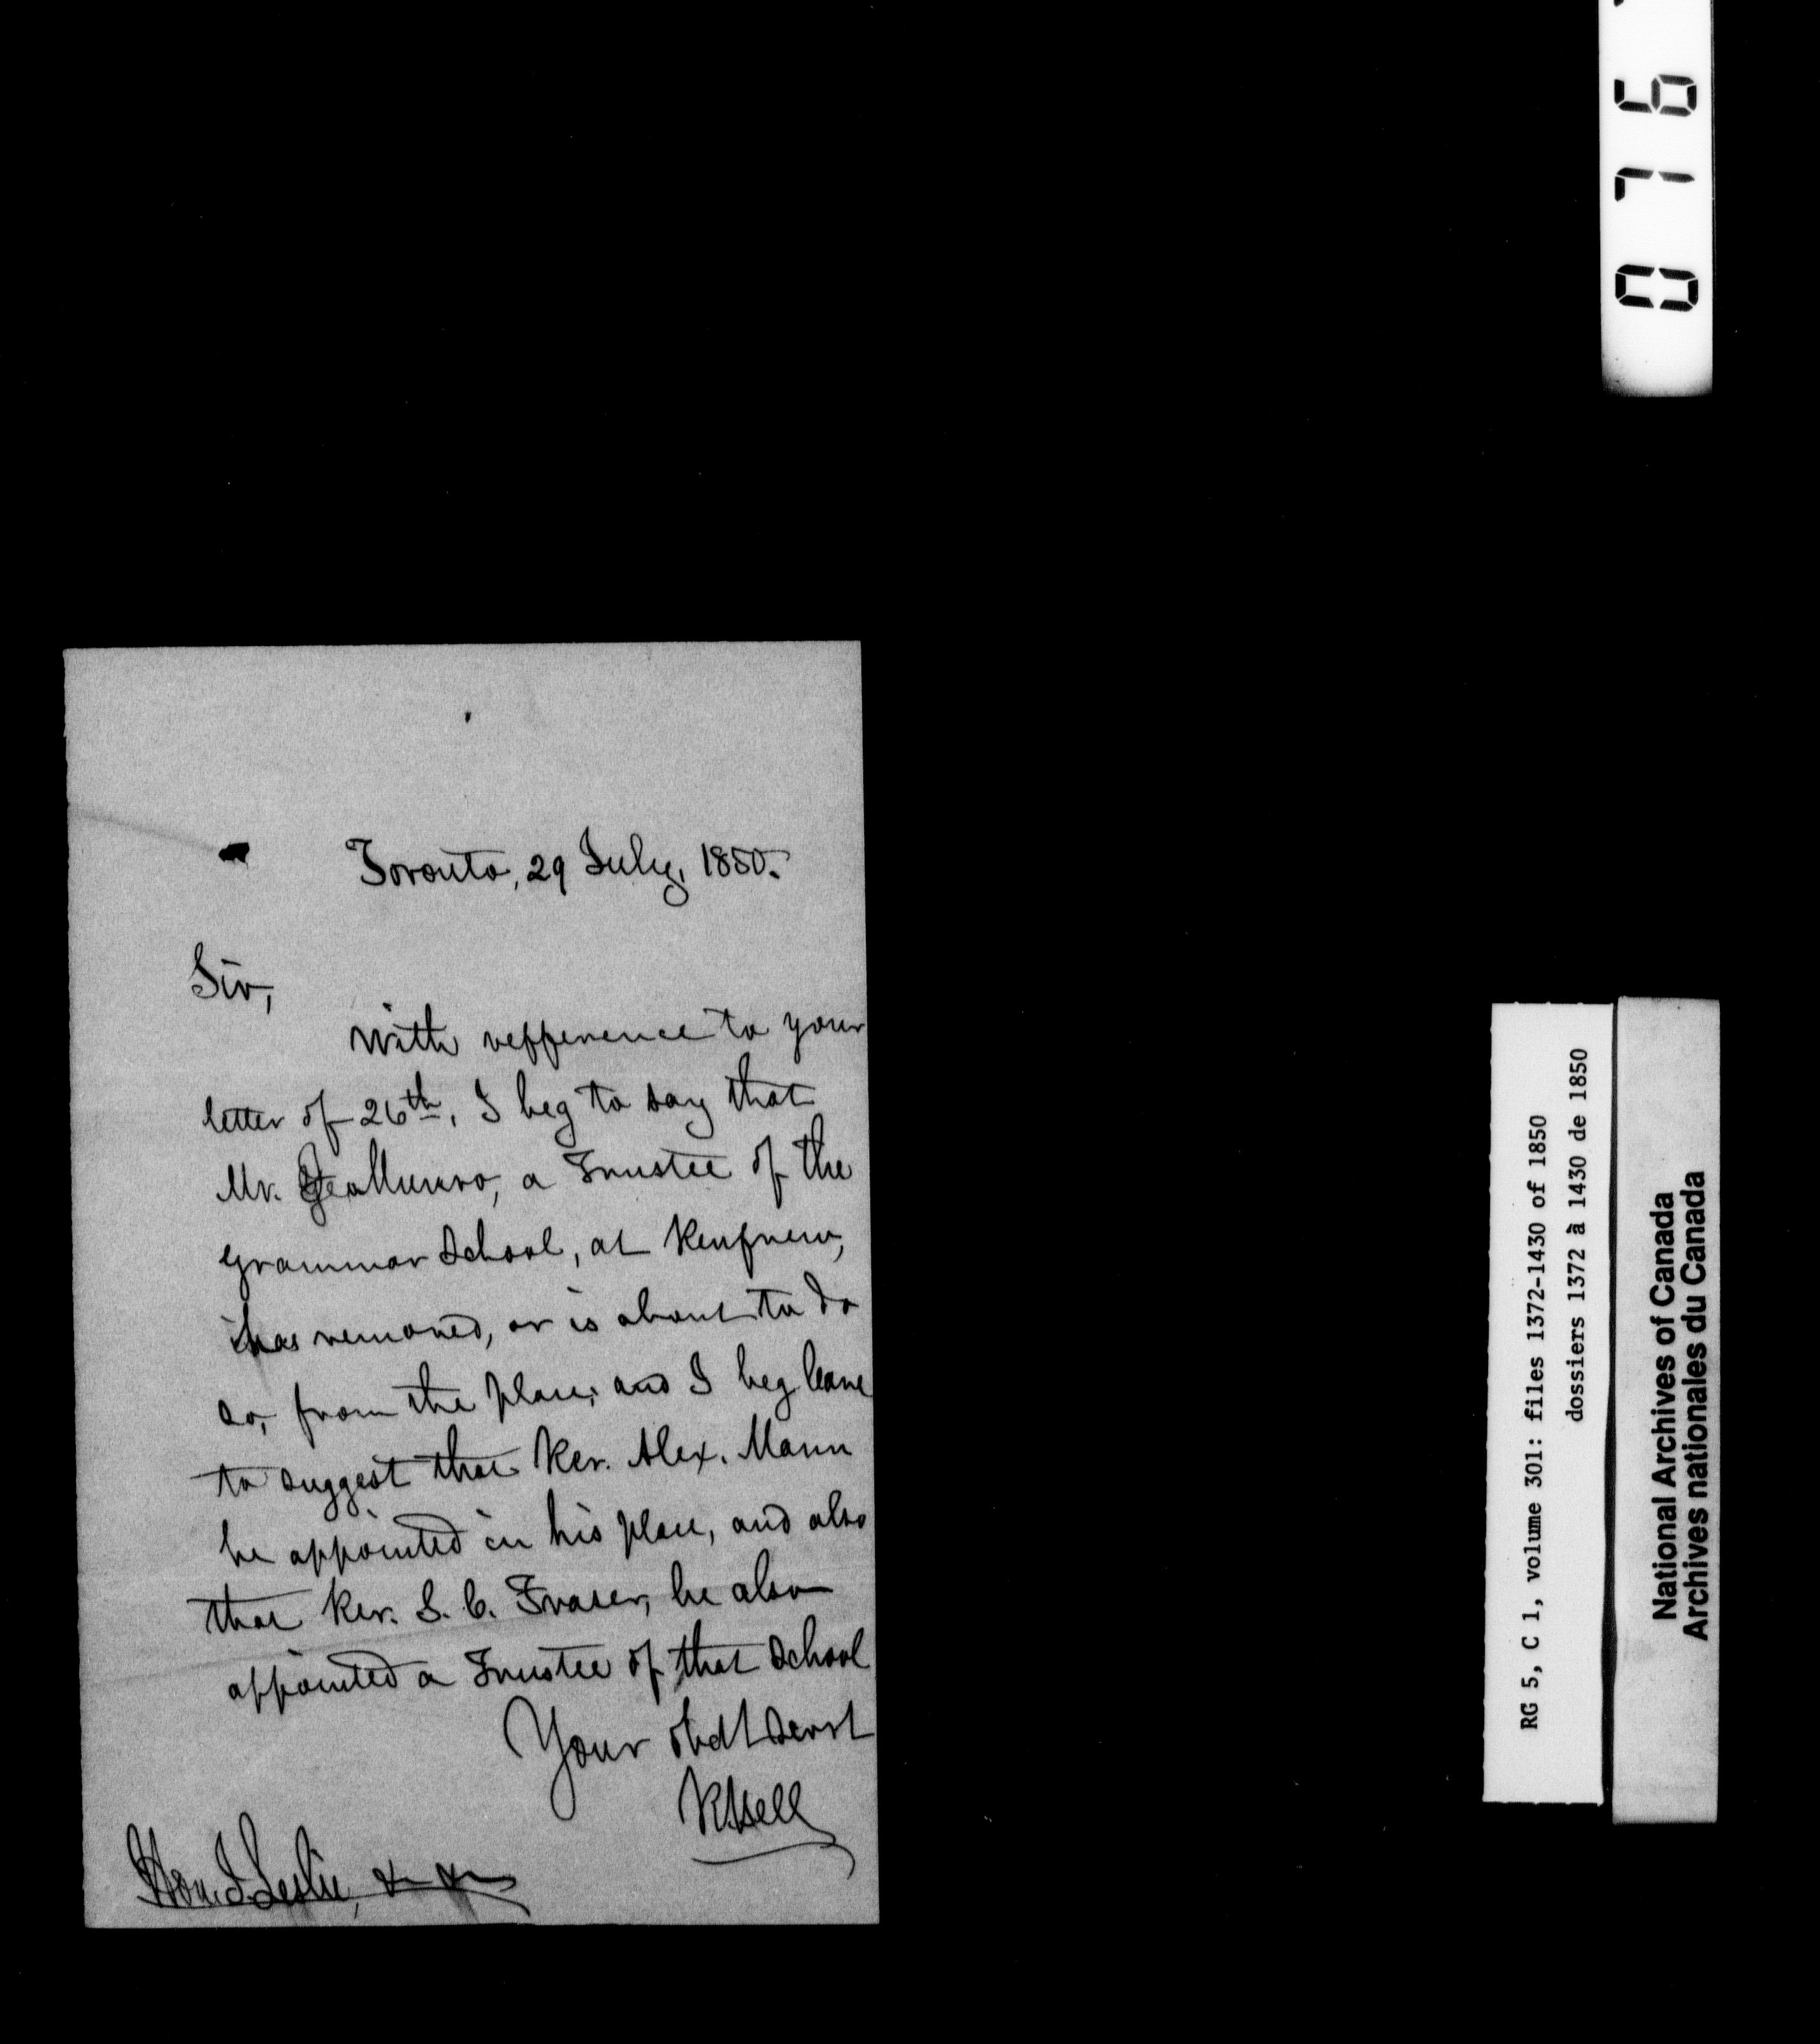 Toronto, 29 July, 1850.
Sir,
With refference to your
letter of 26th, I beg to say that
Mr. Geo Munro, a Trustee of the
Grammar School, at Renfrew,
has removed, or is about to do
so, from the place; and I beg leave
to suggest that Rev. Alex. Mann
be appointed in his place, and also
that Rev. S. C. Fraser, be also
appointed a Trustee of that School
Your obdt Servt
R Bell
Hon. J. Leslie, &c &c
076
RG 5, C 1, volume 301: files 1372-1430 of 1850
dossiers 1372 à 1430 de 1850
National Archives of Canada
Archives nationales du Canada